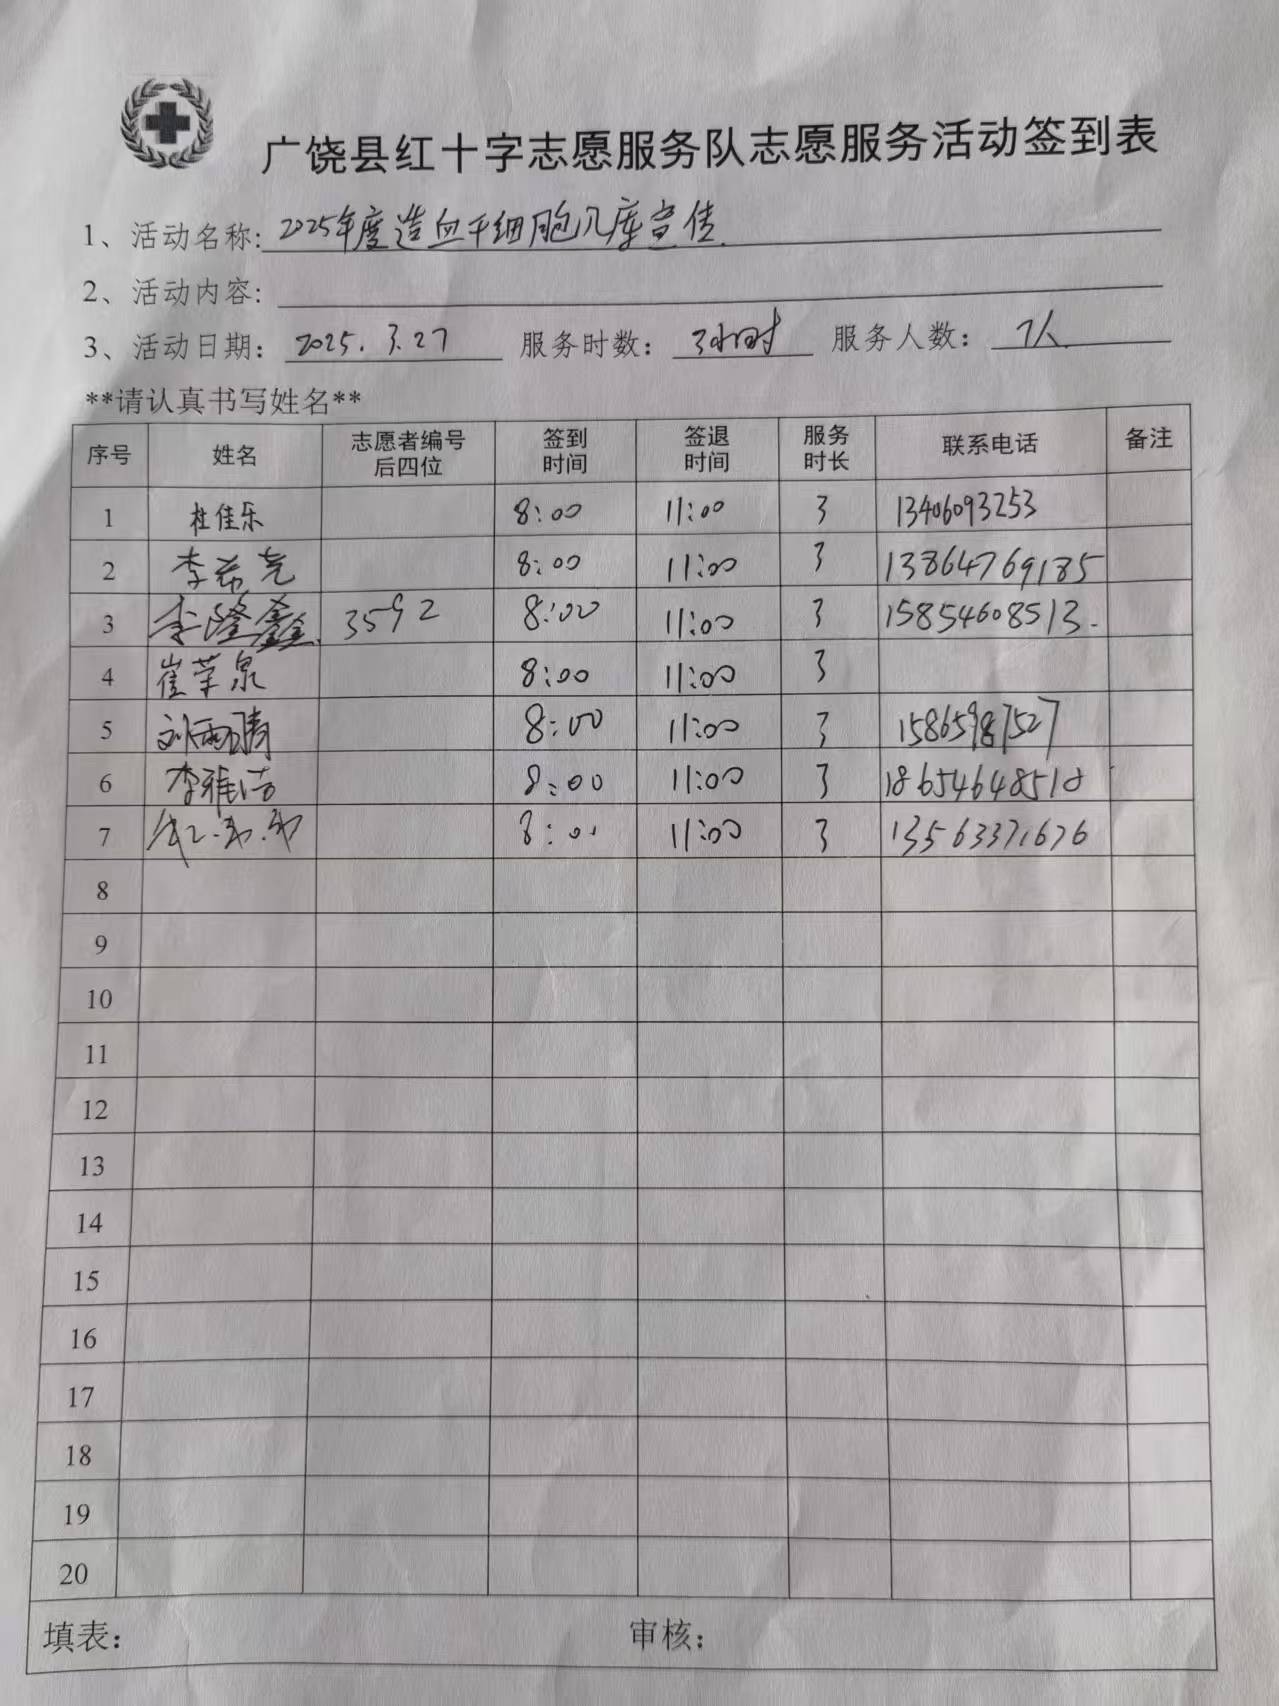 广饶县红十字志愿服务队志愿服务活动签到表
1、活动名称: 2025年度造血干细胞入库宣传
2、活动内容:
3、活动日期: 2025.3.27 服务时数: 3小时 服务人数: 7人
**请认真书写姓名**
序号 姓名 志愿者编号后四位 签到时间 签退时间 服务时长 联系电话 备注
1 杜佳乐 8:00 11:00 3 13406093253
2 李希尧 8:00 11:00 3 13864769185
3 李隆鑫 3592 8:00 11:00 3 15854608513.
4 崔荣泉 8:00 11:00 3
5 刘雨晴 8:00 11:00 3 15865987527
6 李雅洁 8:00 11:00 3 18654648518
7 8:00 11:00 3 13563371676
8
9
10
11
12
13
14
15
16
17
18
19
20
填表: 审核: